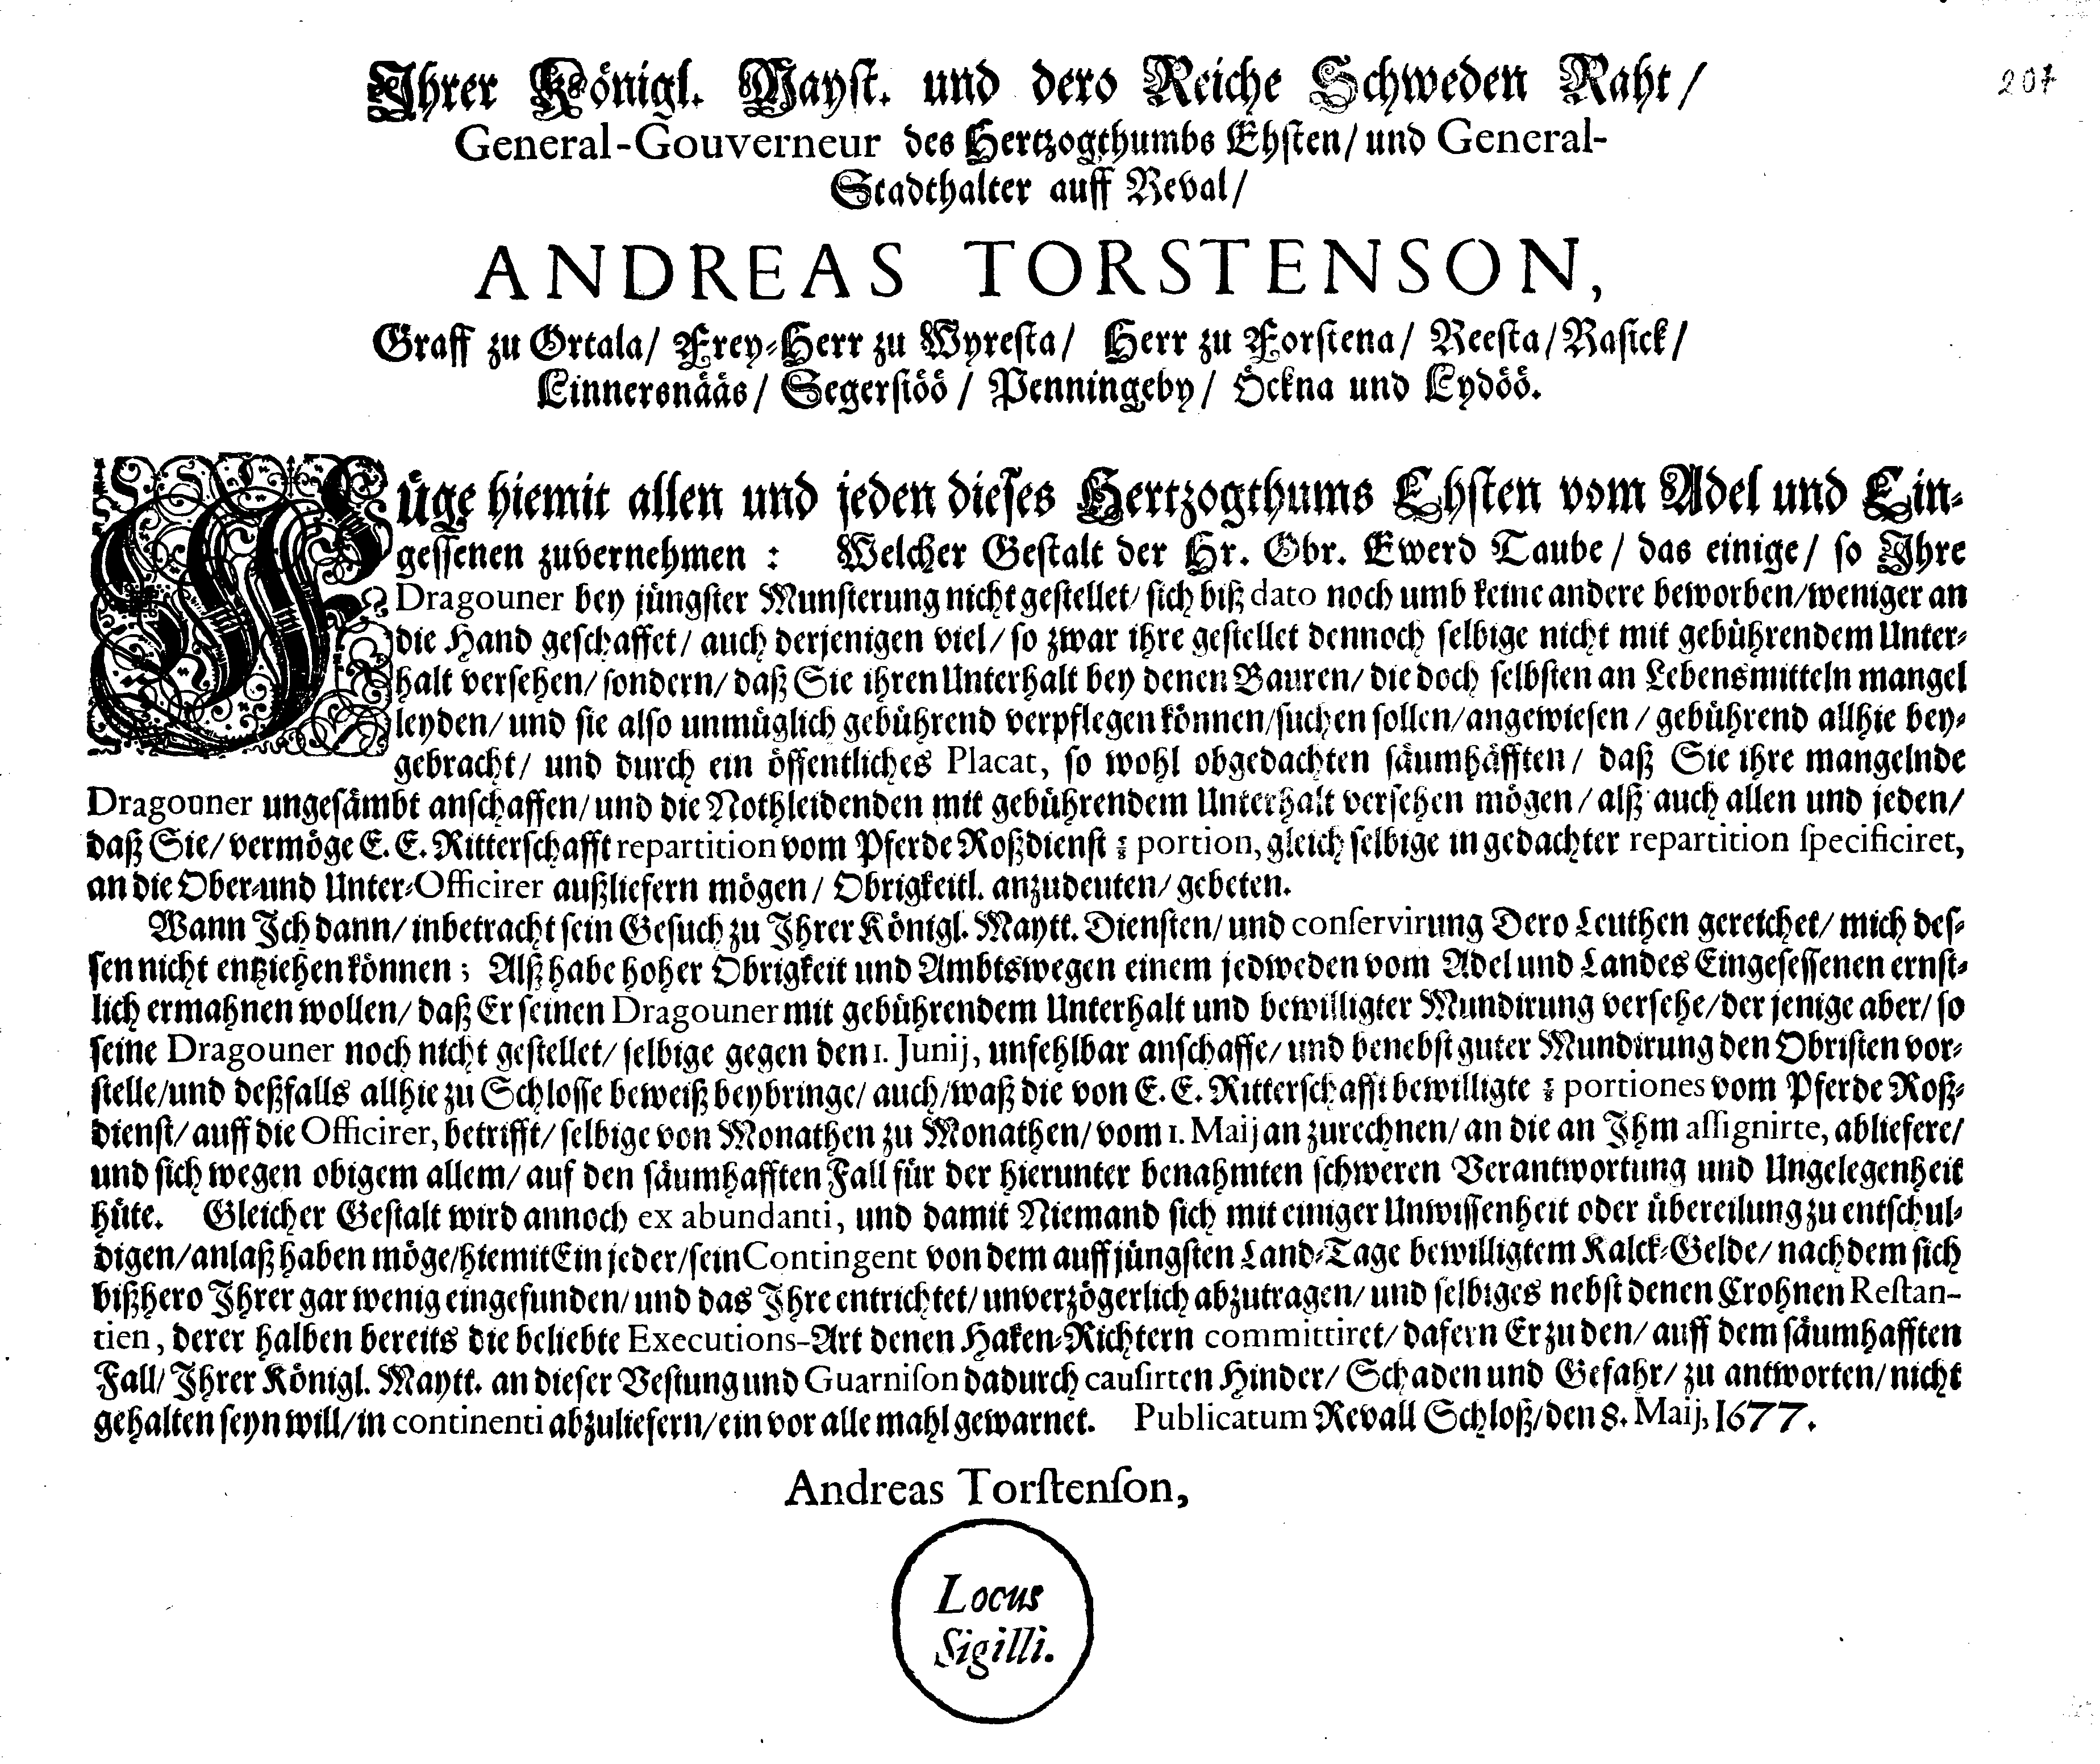 Ihrer Königl. Mayst. und dero Reiche Schweden Raht/
207
General-Gouverneur des Hertzogthumbs Ehsten/ und General-
Stadthalter auff Reval/
ANDREAS TORSTENSON,
Graff zu Ortala/ Frey-Herr zu Wyresta/ Herr zu Forstena/ Reesta/ Rasick/
Linnersnääs/ Segersiöö/ Penningeby/ Öckna und Lydöö.
Füge hiemit allen und jeden dieses Hertzogthums Ehsten vom Adel und Ein-
gessenen zuvernehmen: Welcher Gestalt der Hr. Obr. Ewerd Taube/ das einige/ so Ihre
Dragouner bey jüngster Munsterung nicht gestellet/ sich biß dato noch umb keine andere beworben/ weniger an
die Hand geschaffet/ auch derjenigen viel/ so zwar ihre gestellet dennoch selbige nicht mit gebührendem Unter-
halt versehen/ sondern/ daß Sie ihren Unterhalt bey denen Bauren/ die doch selbsten an Lebensmitteln mangel
leyden/ und sie also unmüglich gebührend verpflegen können/ suchen sollen/ angewiesen/ gebührend allhie bey-
gebracht/ und durch ein öffentliches Placat, so wohl obgedachten säumhäfften/ daß Sie ihre mangelnde
Dragouner ungesämbt anschaffen/ und die Nothleidenden mit gebührendem Unterhalt versehen mögen/ alß auch allen und jeden/
daß Sie/ vermöge E. E. Ritterschafft repartition vom Pferde Roßdienst portion, gleich selbige in gedachter repartition specificiret,
an die Ober-und Unter-Officirer außliefern mögen/ Obrigkeitl. anzudeuten/ gebeten.
Wann Ich dann/ inbetracht sein Gesuch zu Ihrer Königl. Maytt. Diensten/ und conservirung Dero Leuthen gereichet/ mich des-
sen nicht entziehen können; Alß habe hoher Obrigkeit und Ambtswegen einem jedweden vom Adel und Landes Eingesessenen ernst-
lich ermahnen wollen/ daß Er seinen Dragouner mit gebührendem Unterhalt und bewilligter Mundirung versehe/ der jenige aber/ so
seine Dragouner noch nicht gestellet/ selbige gegen den 1. Junij, unfehlbar anschaffe/ und benebst guter Mundirung den Obristen vor-
stelle/ und deßfalls allhie zu Schlosse beweiß beybringe/ auch/ waß die von E. E. Ritterschafft bewilligte portiones vom Pferde Roß-
dienst/ auff die Officirer, betrifft/ selbige von Monathen zu Monathen/ vom 1. Maij an zurechnen/ an die an Ihm assignirte, abliefere/
und sich wegen obigem allem/ auf den säumhafften Fall für der hierunter benahmten schweren Verantwortung und Ungelegenheit
hüte. Gleicher Gestalt wird annoch ex abundanti, und damit Niemand sich mit einiger Unwissenheit oder übereilung zu entschul-
digen/ anlaß haben möge/ hiemit Ein jeder/ sein Contingent von dem auff jüngsten Land-Tage bewilligtem Kalck-Gelde/ nach dem sich
bißhero Ihrer gar wenig eingefunden/ und das Ihre entrichtet/ unverzögerlich abzutragen/ und selbiges nebst denen Crohnen Restan-
tien, derer halben bereits die beliebte Executions-Art denen Haken-Richtern committiret/ dafern Er zu den/ auff dem säumhafften
Fall/ Ihrer Königl. Maytt. an dieser Vestung und Guarnison dadurch causirten Hinder/ Schaden und Gefahr/ zu antworten/ nicht
gehalten seyn will/ in continenti abzuliefern/ ein vor alle mahl gewarnet. Publicatum Revall Schloß/ den 8. Maij, 1677.
Andreas Torstenson,
Locus
Sigilli.